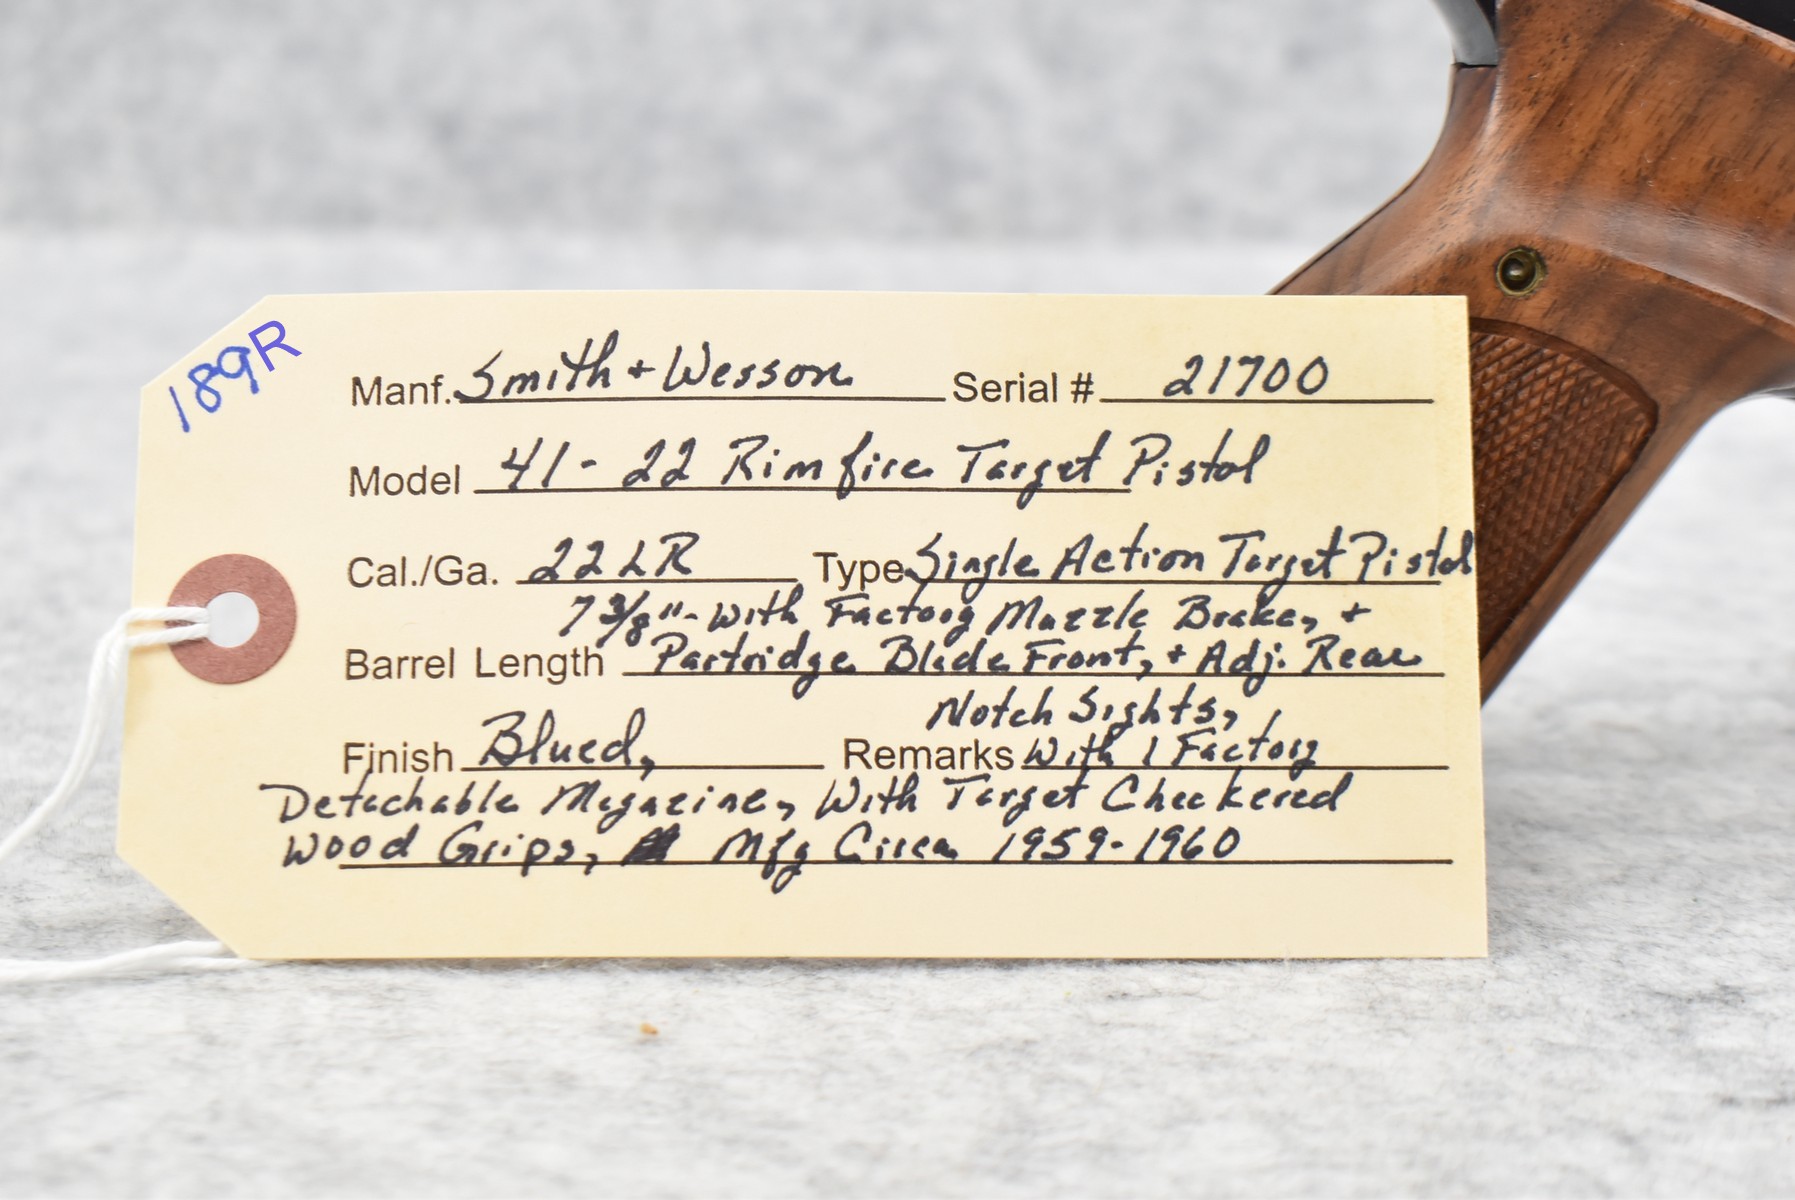 189R
Manf. Smith + Wesson Serial # 21700
Model 41-22 Rimfire Target Pistol
Cal./Ga. 22LR Type Single Action Target Pistol
7 3/8"- With Factory Muzzle Brake, +
Barrel Length Partridge Blade Front, + Adj. Rear
Notch Sights,
Finish Blued, Remarks With 1 Factory
Detachable Magazine, With Target Checkered
Wood Grips, Mfg Circa 1959-1960